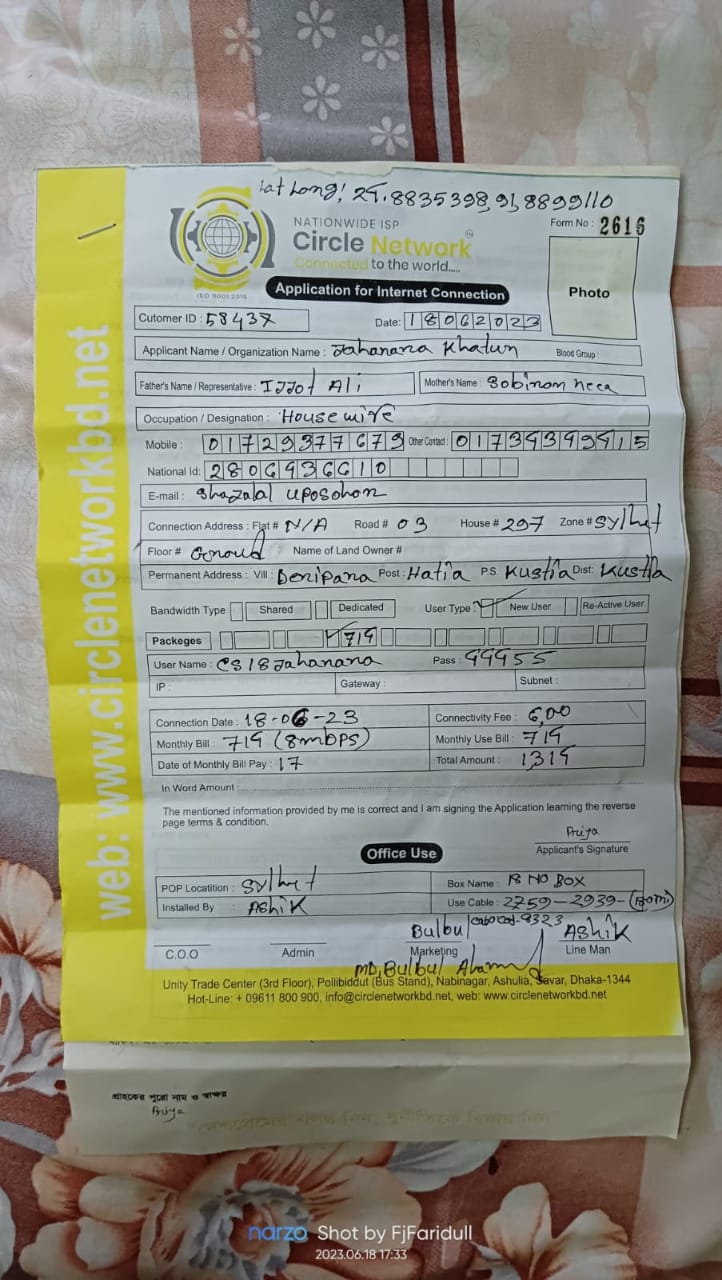 Lat Long: 24.8835398, 91.8899110
NATIONWIDE ISP
Circle Network
Connected to the world.....
ISO 9001:2015
Form No : 2616
Photo
Application for Internet Connection
Cutomer ID : 58437
Date: 18062023
Applicant Name / Organization Name : Jahanara Khatun Blood Group :
Father's Name / Representative : Ijjot Ali Mother's Name : Sobinon neca
Occupation / Designation : House wife
Mobile : 01729377679 Other Contact : 01734349415
National Id: 2806436610
E-mail : Shazalal Uposohon
Connection Address : Flat # N/A Road # 03 House # 297 Zone # Sylhet
Floor # Name of Land Owner #
Permanent Address : Vill : Post : Hatia P.S Kustia Dist: Kustia
Bandwidth Type Shared Dedicated User Type : New User Re-Active User
Packeges 714
User Name : CS18Jahanara Pass : 44455
IP : Gateway : Subnet :
Connection Date : 18-06-23 Connectivity Fee : 600
Monthly Bill : 714 (8mbps) Monthly Use Bill : 714
Date of Monthly Bill Pay : 17 Total Amount : 1314
In Word Amount :
The mentioned information provided by me is correct and I am signing the Application learning the reverse
page terms & condition.
Priya
Applicant's Signature
Office Use
POP Locatition : Sylhet Box Name : 18 NO BOX
Installed By : Ashik Use Cable : 2759-2939-
Bulbul Ashik
C.O.O Admin Marketing Line Man
MD, Bulbul Ahamed
Unity Trade Center (3rd Floor), Pollibiddut (Bus Stand), Nabinagar, Ashulia, Savar, Dhaka-1344
Hot-Line: + 09611 800 900, info@circlenetworkbd.net, web: www.circlenetworkbd.net
web: www.circlenetworkbd.net
গ্রাহকের পুরো নাম ও স্বাক্ষর
Priya
narzo Shot by FjFaridull
2023.06.18 17:33